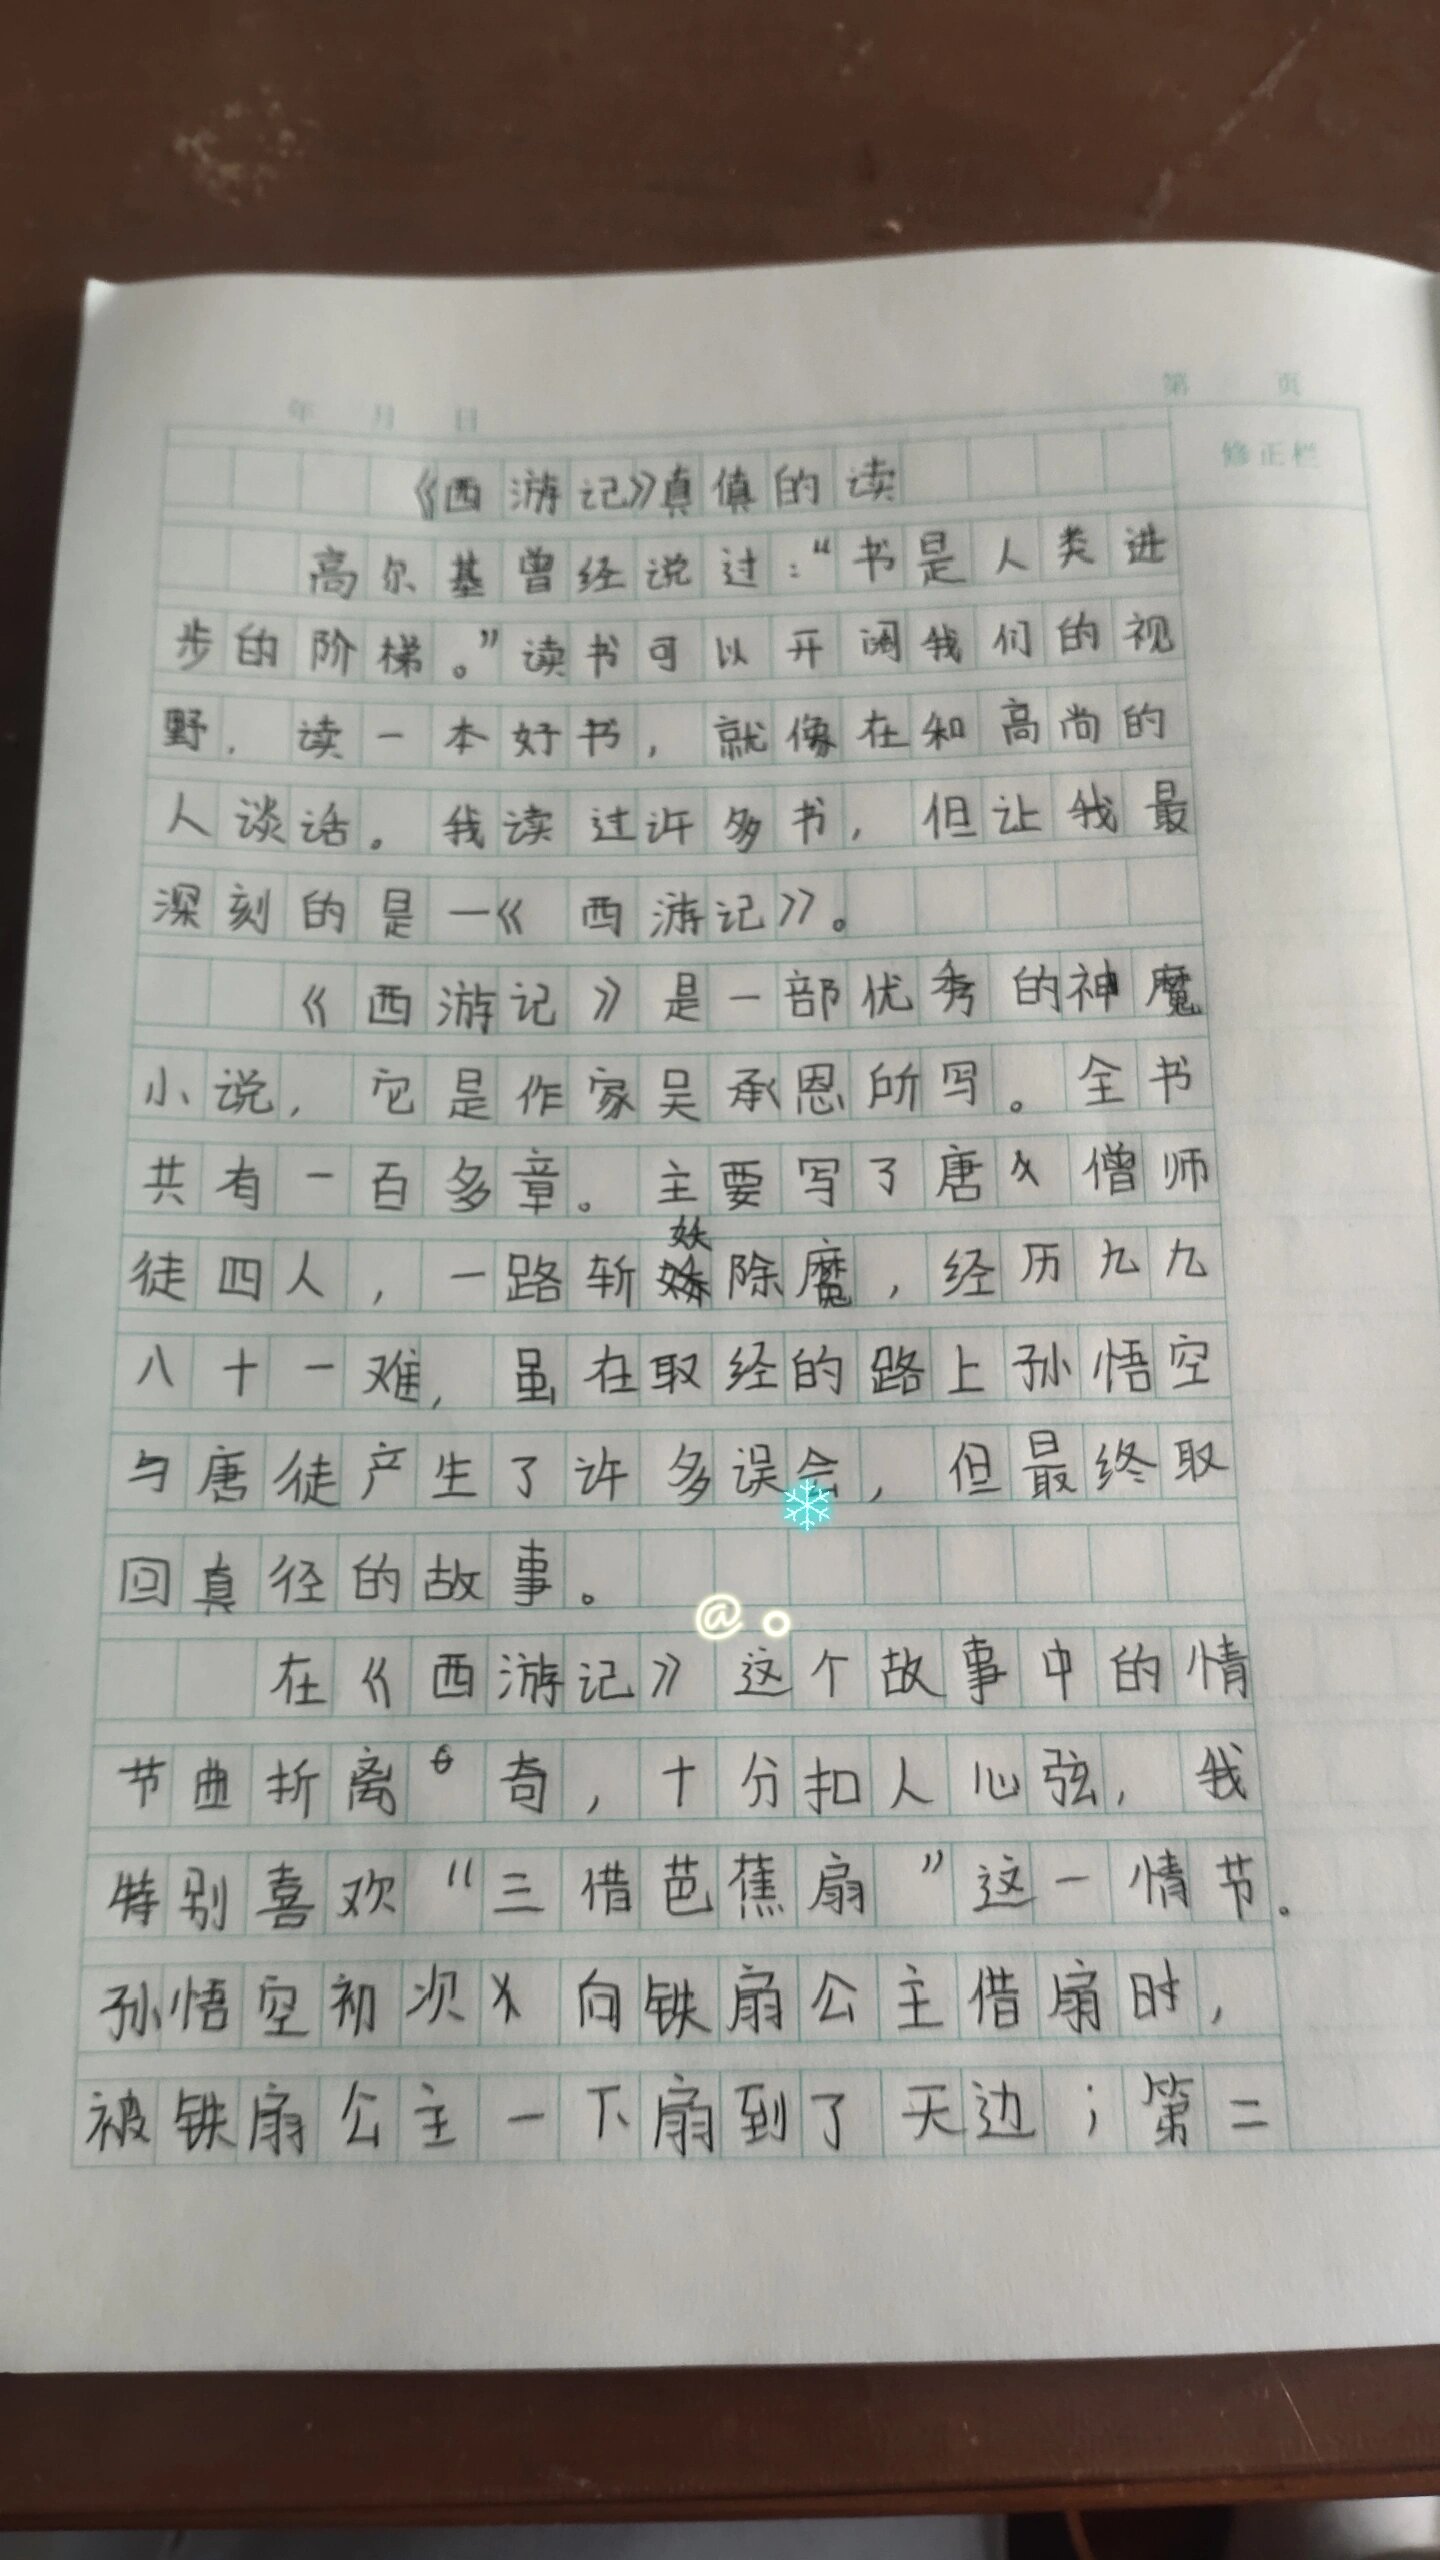 年 月 日 第 页
修正栏
《西游记》真值的读
高尔基曾经说过：“书是人类进
步的阶梯。”读书可以开阔我们的视
野，读一本好书，就像在和高尚的
人谈话。我读过许多书，但让我最
深刻的是一《西游记》。
《西游记》是一部优秀的神魔
小说，它是作家吴承恩所写。全书
共有一百多章。主要写了唐僧师
徒四人，一路斩妖除魔，经历九九
八十一难，虽在取经的路上孙悟空
与唐徒产生了许多误会，但最终取
回真径的故事。
@。
在《西游记》这个故事中的情
节曲折离奇，十分扣人心弦，我
特别喜欢“三借芭蕉扇”这一情节。
孙悟空初次向铁扇公主借扇时，
被铁扇公主一下扇到了天边；第二